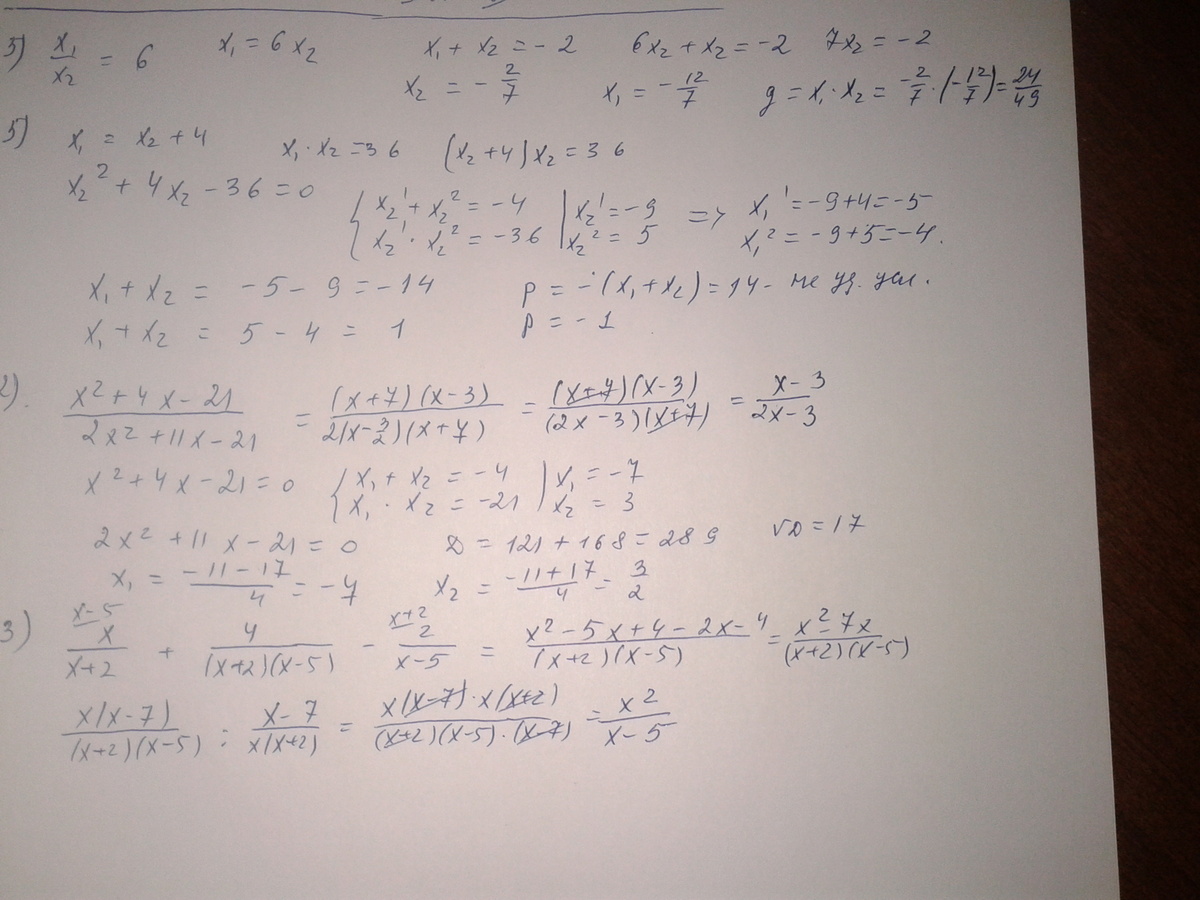 3) x₁/x₂ = 6 x₁ = 6x₂ x₁ + x₂ = -2 6x₂ + x₂ = -2 7x₂ = -2
x₂ = -2/7 x₁ = -12/7 g = x₁·x₂ = -2/7·(-12/7) = 24/49
5) x₁ = x₂ + 4 x₁·x₂ = 36 (x₂+4)x₂ = 36
x₂² + 4x₂ - 36 = 0
{ x₂¹ + x₂² = -4 | x₂¹ = -9 => x₁¹ = -9+4 = -5
x₂¹ · x₂² = -36 | x₂² = 5 x₁² = -9+5 = -4.
x₁ + x₂ = -5 - 9 = -14 p = -(x₁+x₂) = 14 - не уд. усл.
x₁ + x₂ = 5 - 4 = 1 p = -1
2). (x²+4x-21)/(2x²+11x-21) = ((x+7)(x-3))/(2(x-3/2)(x+7)) = ((x+7)(x-3))/((2x-3)(x+7)) = (x-3)/(2x-3)
x²+4x-21=0 { x₁ + x₂ = -4 | x₁ = -7
x₁ · x₂ = -21 | x₂ = 3
2x²+11x-21=0 D = 121+168 = 289 √D = 17
x₁ = (-11-17)/4 = -7 x₂ = (-11+17)/4 = 3/2
x-5 x+2
3) x/(x+2) + 4/((x+2)(x-5)) - 2/(x-5) = (x²-5x+4-2x-4)/((x+2)(x-5)) = (x²-7x)/((x+2)(x-5))
x(x-7)/((x+2)(x-5)) : (x-7)/(x(x+2)) = (x(x-7)·x(x+2))/((x+2)(x-5)·(x-7)) = x²/(x-5)